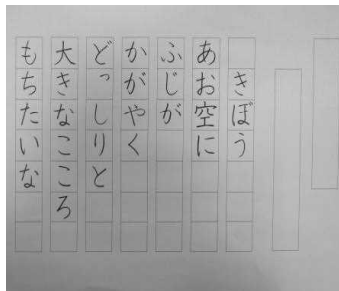 きぼう
あお空に
ふじが
かがやく
どっしりと
大きなこころ
もちたいな